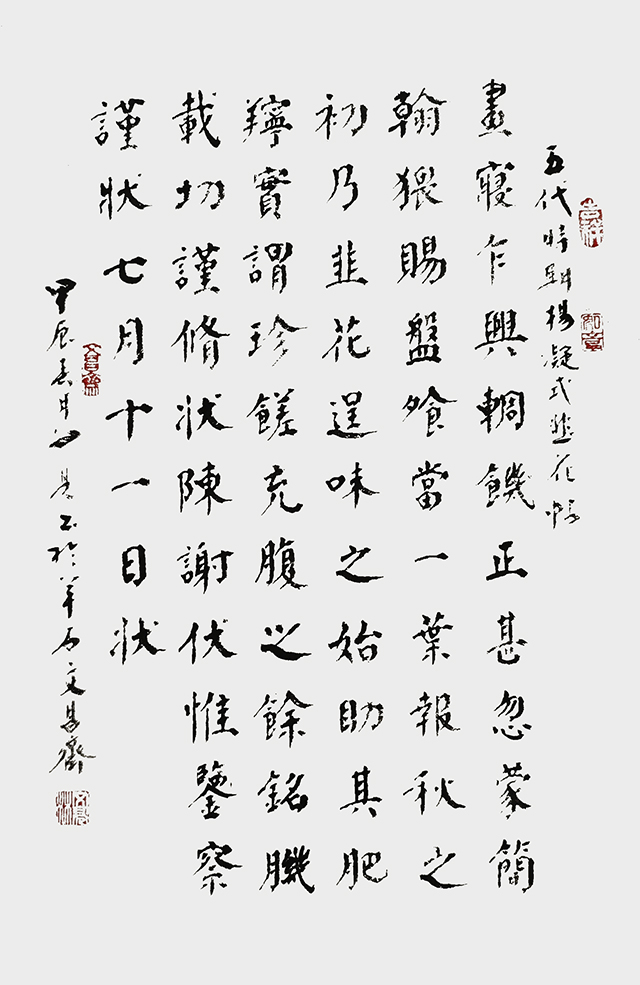 五代時期楊凝式韭花帖
晝寢乍興輖饑正甚忽蒙簡
翰猥賜盤飧當一葉報秋之
初乃韭花逞味之始助其肥
羜實謂珍饈充腹之餘銘肌
載切謹脩狀陳謝伏惟鑒察
謹狀七月十一日狀
甲辰春月 書於羊石文昌齋
吉祥